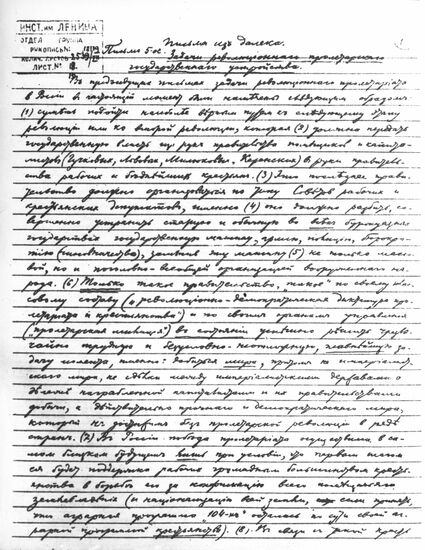 ИНСТ. им. ЛЕНИНА
ОТДЕЛ ГРУППА
РУКОПИСЬ №
КОЛИЧ. ЛИСТОВ
ЛИСТ №
Письма из далека.
Письмо 5-ое. Задачи революционного пролетарского
государственного устройства.
В предыдущих письмах задачи революционного пролетариата
в России в настоящий момент были намечены следующим образом:
(1) суметь подойти наиболее верным путем к следующему этапу
революции или ко второй революции, которая (2) должна передать
государственную власть из рук правительства помещиков и капита-
листов (Гучковых, Львовых, Милюковых, Керенских) в руки правитель-
ства рабочих и беднейших крестьян. (3) Это последнее прави-
тельство должно организоваться по типу Советов рабочих и
крестьянских депутатов, именно (4) оно должно разбить, со-
вершенно устранить старую и обычную во всех буржуазных
государствах государственную машину, армию, полицию, бюрокра-
тию (чиновничество), заменив эту машину (5) не только массо-
вой, но и поголовно-всеобщей организацией вооруженного на-
рода. (6) Только такое правительство, "такое" по своему клас-
совому составу ("революционно-демократическая диктатура про-
летариата и крестьянства") и по своим органам управления
("пролетарская милиция") в состоянии успешно решить чрезвы-
чайно трудную и безусловно-неотложную, главнейшую за-
дачу момента, именно: добиться мира, притом не империалист-
ского мира, не сделки между империалистскими державами о
дележе награбленной капиталистами и их правительствами
добычи, а действительно прочного и демократического мира,
который не достижим без пролетарской революции в ряде
стран. (7) В России победа пролетариата осуществима в са-
мом близком будущем лишь при условии, что первым шагом
ее будет поддержка рабочих громадным большинством кресть-
янства в борьбе его за конфискацию всего помещичьего
землевладения (и национализацию всей земли, если принять,
что аграрная программа "104-х" осталась по сути своей аг-
рарной программой крестьянства). (8) В связи с такой кресть